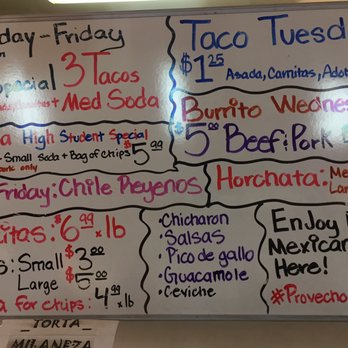 day-Friday
Special 3 Tacos
+ Med Soda
Taco Tuesd
$1.25
Asada, Carnitas, Adob
Burrito Wednes
$5.00 Beef & Pork
a High Student Special
- Small Soda + Bag of chips $5.99
Pork only
Friday: Chile Reyenos
Horchata: Me
Lar
itas: $6.99 x lb
s: Small $3.00
Large $5.00
a for chips: 4.99 x lb
• Chicharon
• Salsas
• Pico de gallo
• Guacamole
• Ceviche
Enjoy
Mexican
Here!
#Provecho
TORTA
MILANEZA